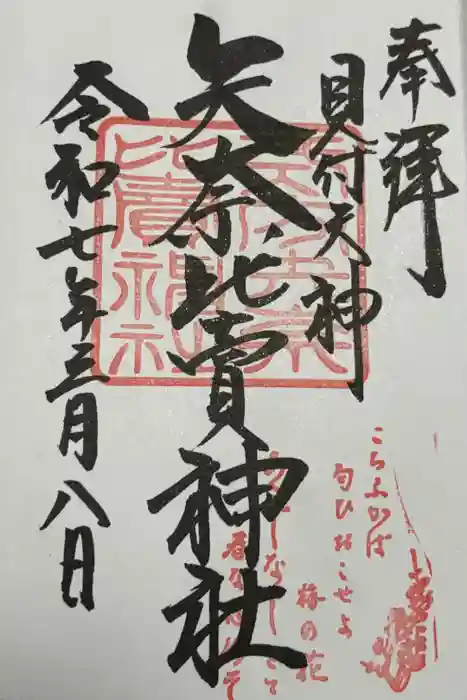 奉拝
見付天神
矢奈比賣神社
令和七年三月八日
矢奈比賣神社
こちふかば
匂ひおこせよ
梅の花
あるじなしとて
春なわすれそ